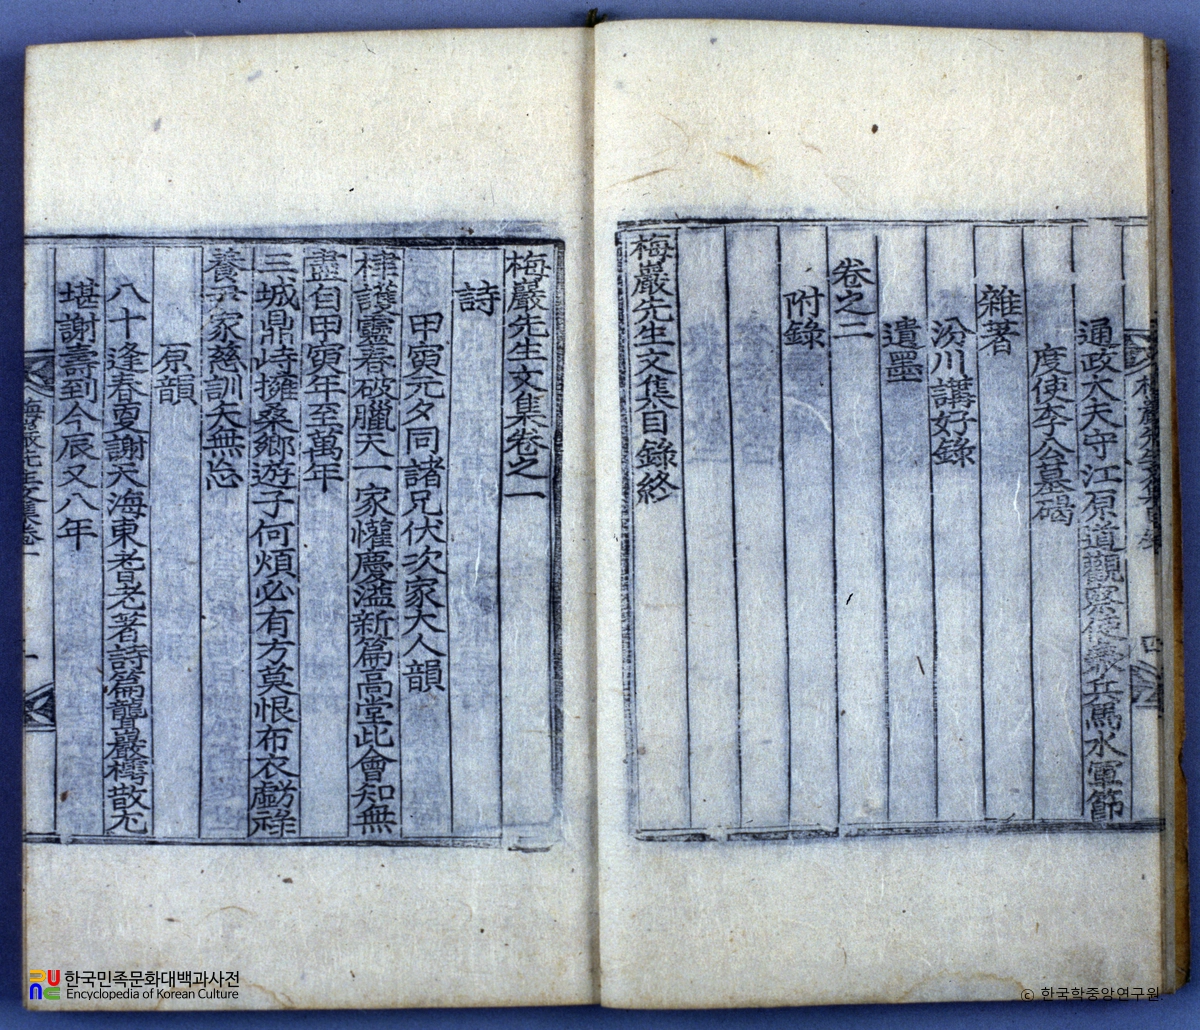 通政大夫守江原道觀察使兼兵馬水軍節
度使李公墓碣
雜著
汾川講好錄
遺墨
附錄
卷之二
梅巖先生文集目錄終
梅巖先生文集卷之一
詩
甲寅元夕同諸兄伏次家大人韻
棣護靈春破臘天一家懽慶溢新篇高堂此會知無
盡自甲寅年至萬年
三城鼎峙擁桑鄉遊子何煩必有方莫恨布衣虧祿
養吾家慈訓大無忘
原韻
八十逢春更謝天海東老
老著詩篇聾巖樗散尤
堪謝壽到今辰又八年
梅巖先生文集卷一
한국민족문화대백과사전
Encyclopedia of Korean Culture
© 한국학중앙연구원